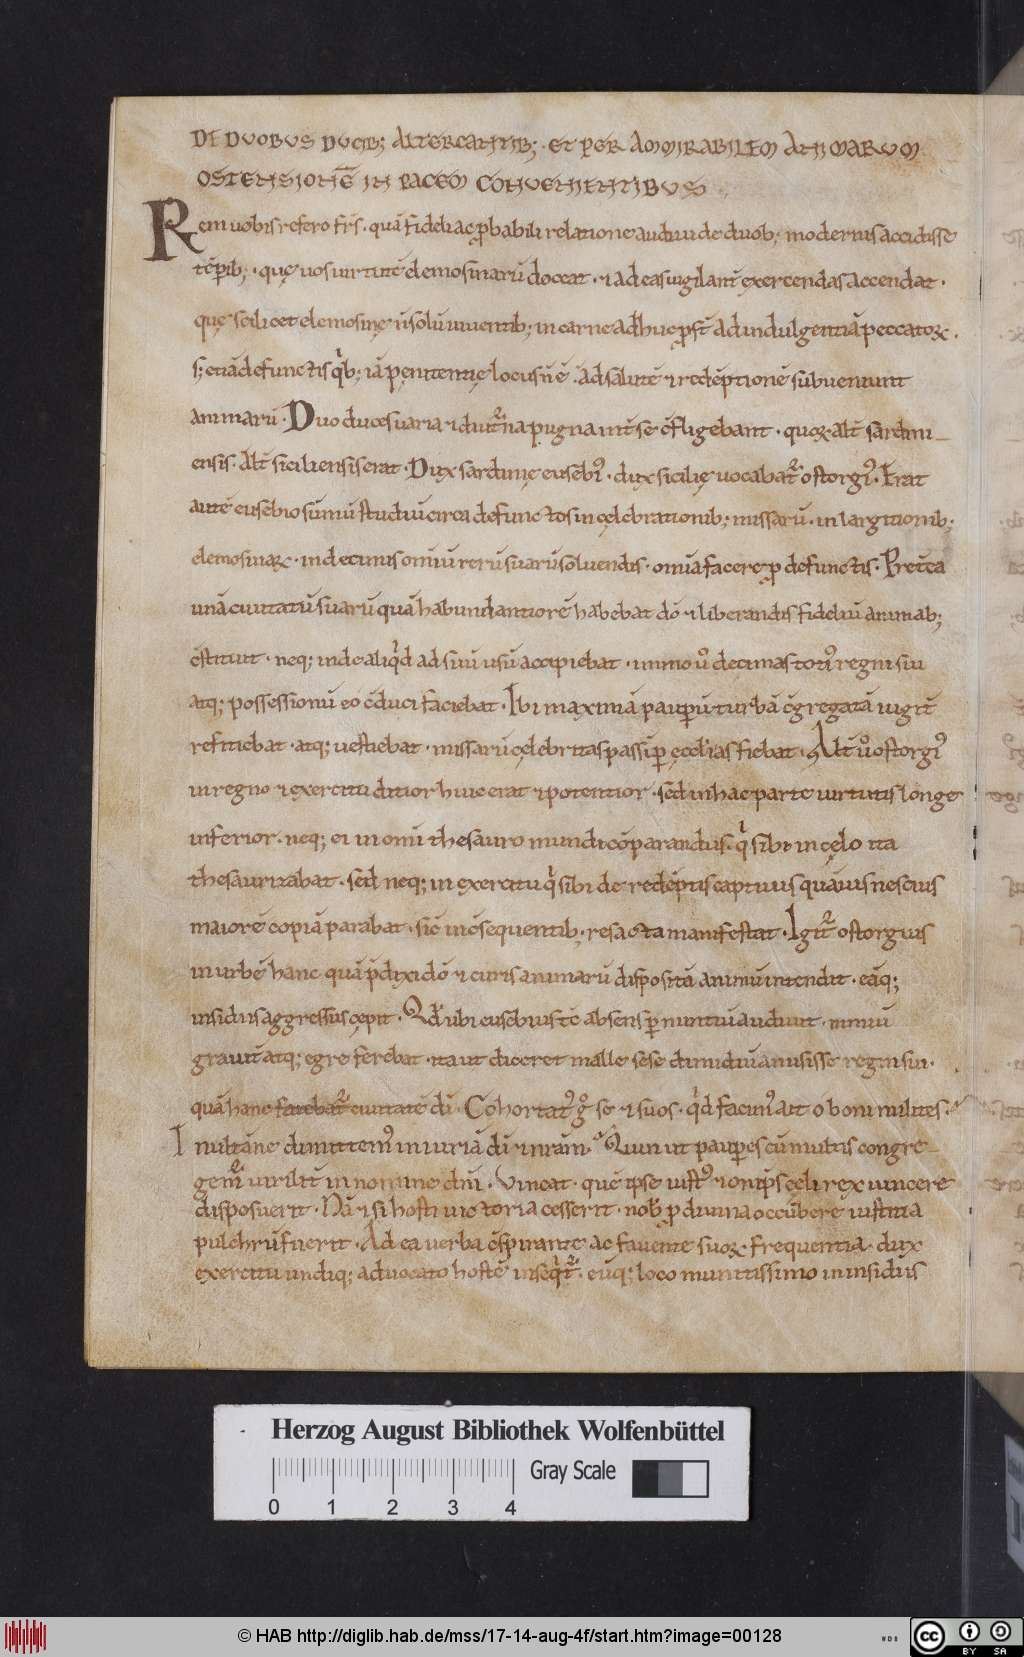 DE DVOBVS DVCIB; ALTERCANTIB; · ET PER AMMIRABILEM ANIMARVM
OSTENSIONĒ IN PACEM CONVENIENTIBVS
Rem uobis refero fr̄s · quā fideli ac ꝓbabili relatione audiui de duob; modernis accidisse
tēpib; · quę uos uirtutē elemosinarū doceat · ⁊ ad eas uigilant̄ exercendas accendat ·
quę scilicet elemosinę n̄ solū uiuentib; in carne adhuc ꝓs̄t ad indulgentiā peccatoꝝ ·
s; etiā defunctis qͥb; iā pęnitentię locus n̄ ē · ad salutē ⁊ redēptionē subueniunt
animarū · Duo duces uaria ⁊ diut̄na pugna int̄ se c̄fligebant · quoꝝ alt̄ sardini
ensis · alt̄ siciliensis erat · Dux sardinię eusebiꝰ · dux sicilię uocabat᷑ ostorgiꝰ · Erat
autē eusebio sūmū studiū circa defunctos in cęlebrationib; missarū · in largitionib;
elemosinaꝝ · in decimis om̄iū rerū suarū soluendis · omīa facere ꝓ defunctis · Pret̄ea
unā ciuitatū suarū quā habundantiorē habebat dō ⁊ liberandis fideliū animab;
c̄stituit · neq; inde aliqͥd ad suū usū accipiebat · immo uͦ decimas totiꝰ regni sui
atq; possessionū eo c̄duci faciebat · Ibi maximā paupū turbā c̄gregatā iugit̄
reficiebat · atq; uestiebat · missarū cęlebritas passī ꝑ ęccl̄ias fiebat · Alt̄ uͦ ostorgiꝰ
in regno ⁊ exercitu ditior huic erat ⁊ potentior · sed in hac parte uirtutis longe
inferior · neq; ei in om̄i thesauro mundi cōparandus · qͥ sibi in cęlo ita
thesaurizabat · sed neq; in exercitu qͥ sibi de redēptis captiuis quāuis nescius
maiorē copiā parabat · sic̄ in c̄sequentib; res acta manifestat · Igit᷑ ostorgius
in urbē hanc quā p̄dixi dō ⁊ curis animarū dispositā animū intendit · eāq;
insidiis aggressus cępit · Qd̄ ubi eusebius tc̄ absens ꝑ nuntiū audiuit · nimiū
grauit̄ atq; egre ferebat · ita ut diceret malle sese dimidiū amisisse regni sui ·
quā hanc ciuitatē dī · Cohortatꝰ gͦ se ⁊ suos · qͥd facimꝰ ait o boni milites ·
Inultāne dimittemꝰ iniuriā dī ⁊ nrām · Quin ut pauperes cū multis congre
gem᷑ uirilit̄ in nomine dn̄i · Vincat · quē ipse iustꝰ ⁊ om̄ps cęli rex uincere
disposuerit · Nā ⁊ si hosti uictoria cesserit · nob̄ ꝓ diuina occūbere iustitia
pulchrū fuerit · Ad ea uerba c̄spirante ac fauente suoꝝ frequentia dux
exercitu undiq; aduocato hostē inseqͥt᷑ · eūq; loco munitissimo in insidiis
Herzog August Bibliothek Wolfenbüttel
0 1 2 3 4 Gray Scale
© HAB http://diglib.hab.de/mss/17-14-aug-4f/start.htm?image=00128
WDB
cc BY SA